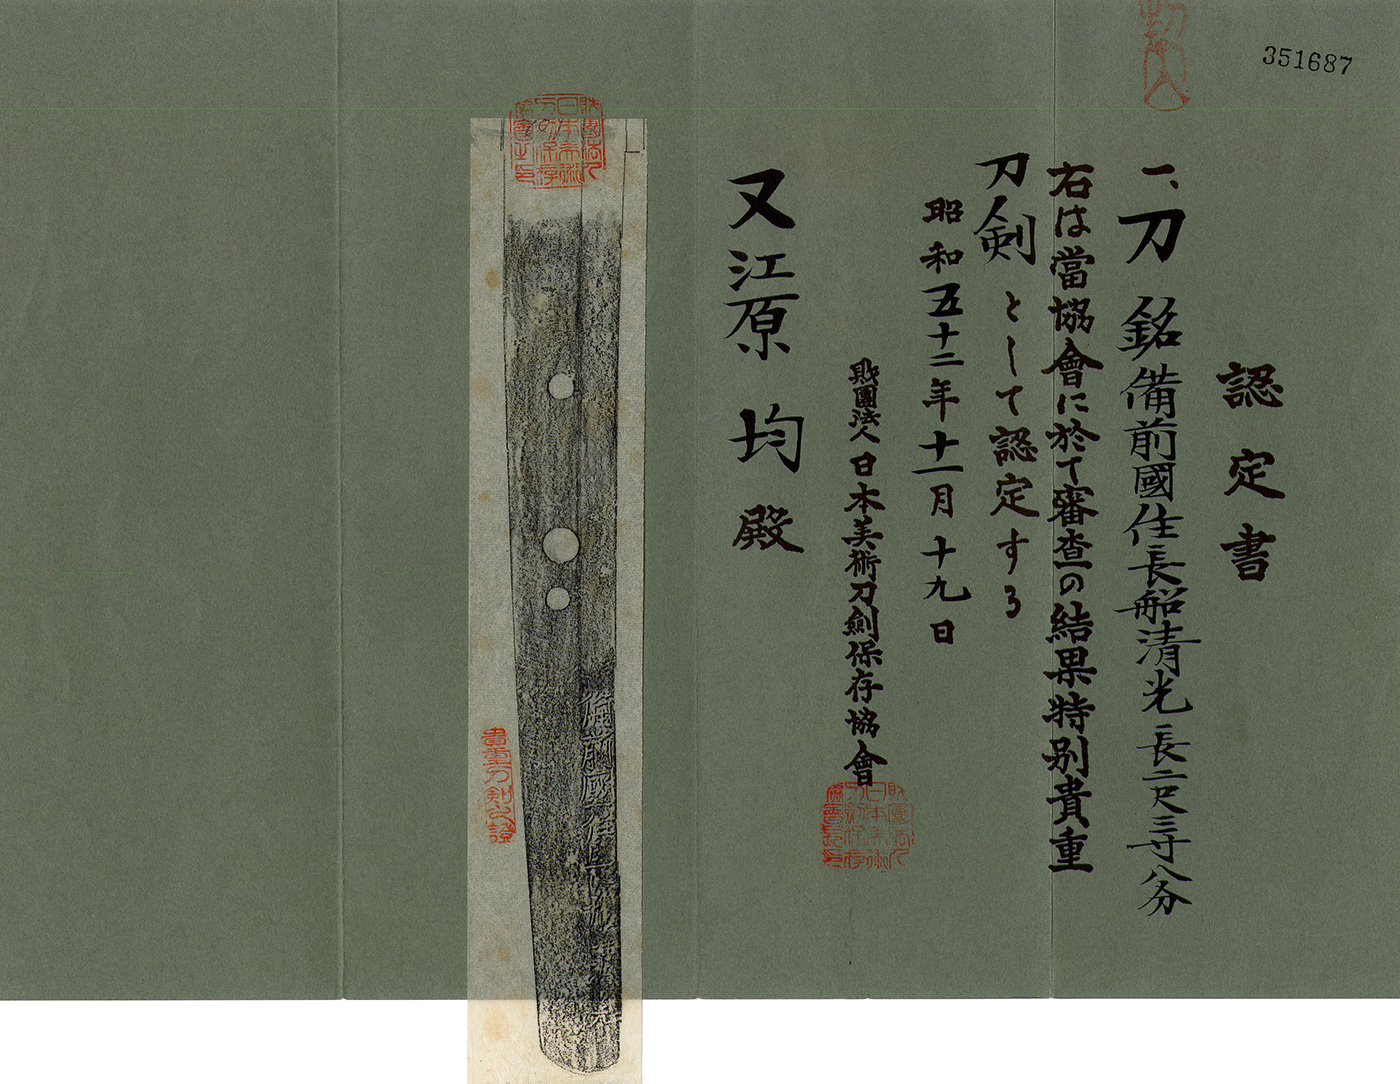 351687
認定書
一、刀 銘備前國住長船清光 長二尺三寸八分
右は當協會に於て審査の結果特別貴重
刀剣として認定する
昭和五十二年十一月十九日
財團法人日本美術刀劍保存協會
又江原 均 殿
貴重刀剣之證